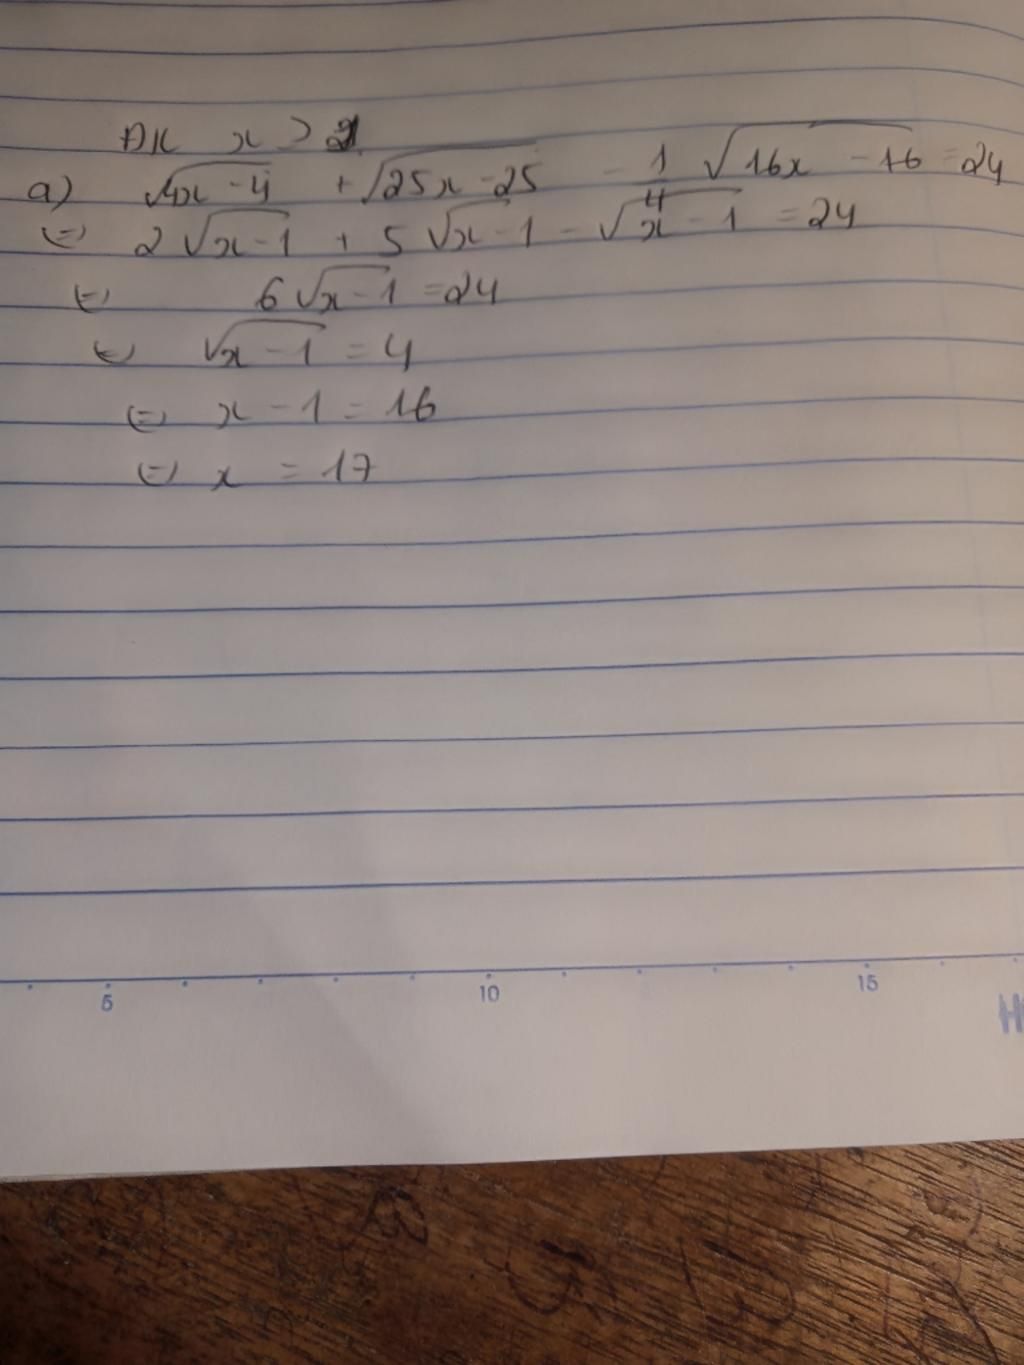 ĐK x > 1
a) √4x - 4 + √25x - 25 - 1/4 √16x - 16 = 24
(=) 2√x - 1 + 5√x - 1 - √x - 1 = 24
(=) 6√x - 1 = 24
(=) √x - 1 = 4
(=) x - 1 = 16
(=) x = 17
5 10 15
H